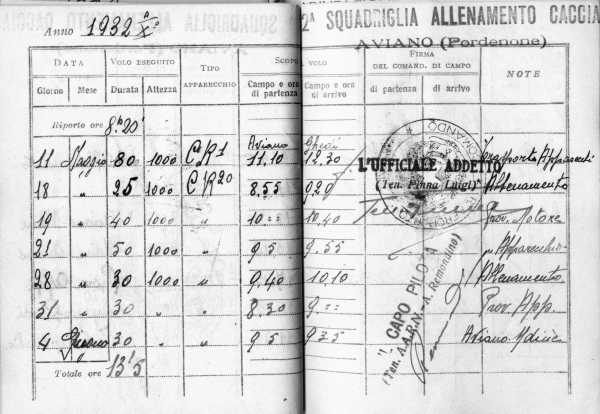 2ª SQUADRIGLIA ALLENAMENTO CACCIA
AVIANO (Pordenone)
Anno 1932 X°
DATA VOLO ESEGUITO TIPO APPARECCHIO SCOPO VOLO FIRMA DEL COMAND. DI CAMPO NOTE
Giorno Mese Durata Altezza Campo e ora di partenza Campo e ora di arrivo di partenza di arrivo
Riporto ore 8h 20'
Aviano
11 Maggio 80 1000 CR1 11,10 12,30 Trasporto Apparecchi
18 " 25 1000 CR20 8.55 9.20 Allenamento
19 " 40 1000 " 10.== 10,40 Prov. Motore
21 " 50 1000 " 9.5 9.55 " Apparecchio
28 " 30 1000 " 9,40 10,10 Allenamento
31 " 30 " " 8.30 9.== Prov. App.
4 Giugno 30 " " 9 5 9 35 Aviano Udine
Totale ore 13h 5
COMANDO
L'UFFICIALE ADDETTO
(Ten. Pinna Luigi)
IL CAPO PILOTA
(Ten. A.A.R.N. - A. Remondino)